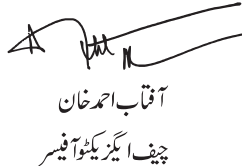 آفتاب احمد خان
چیف ایگزیکٹو آفیسر